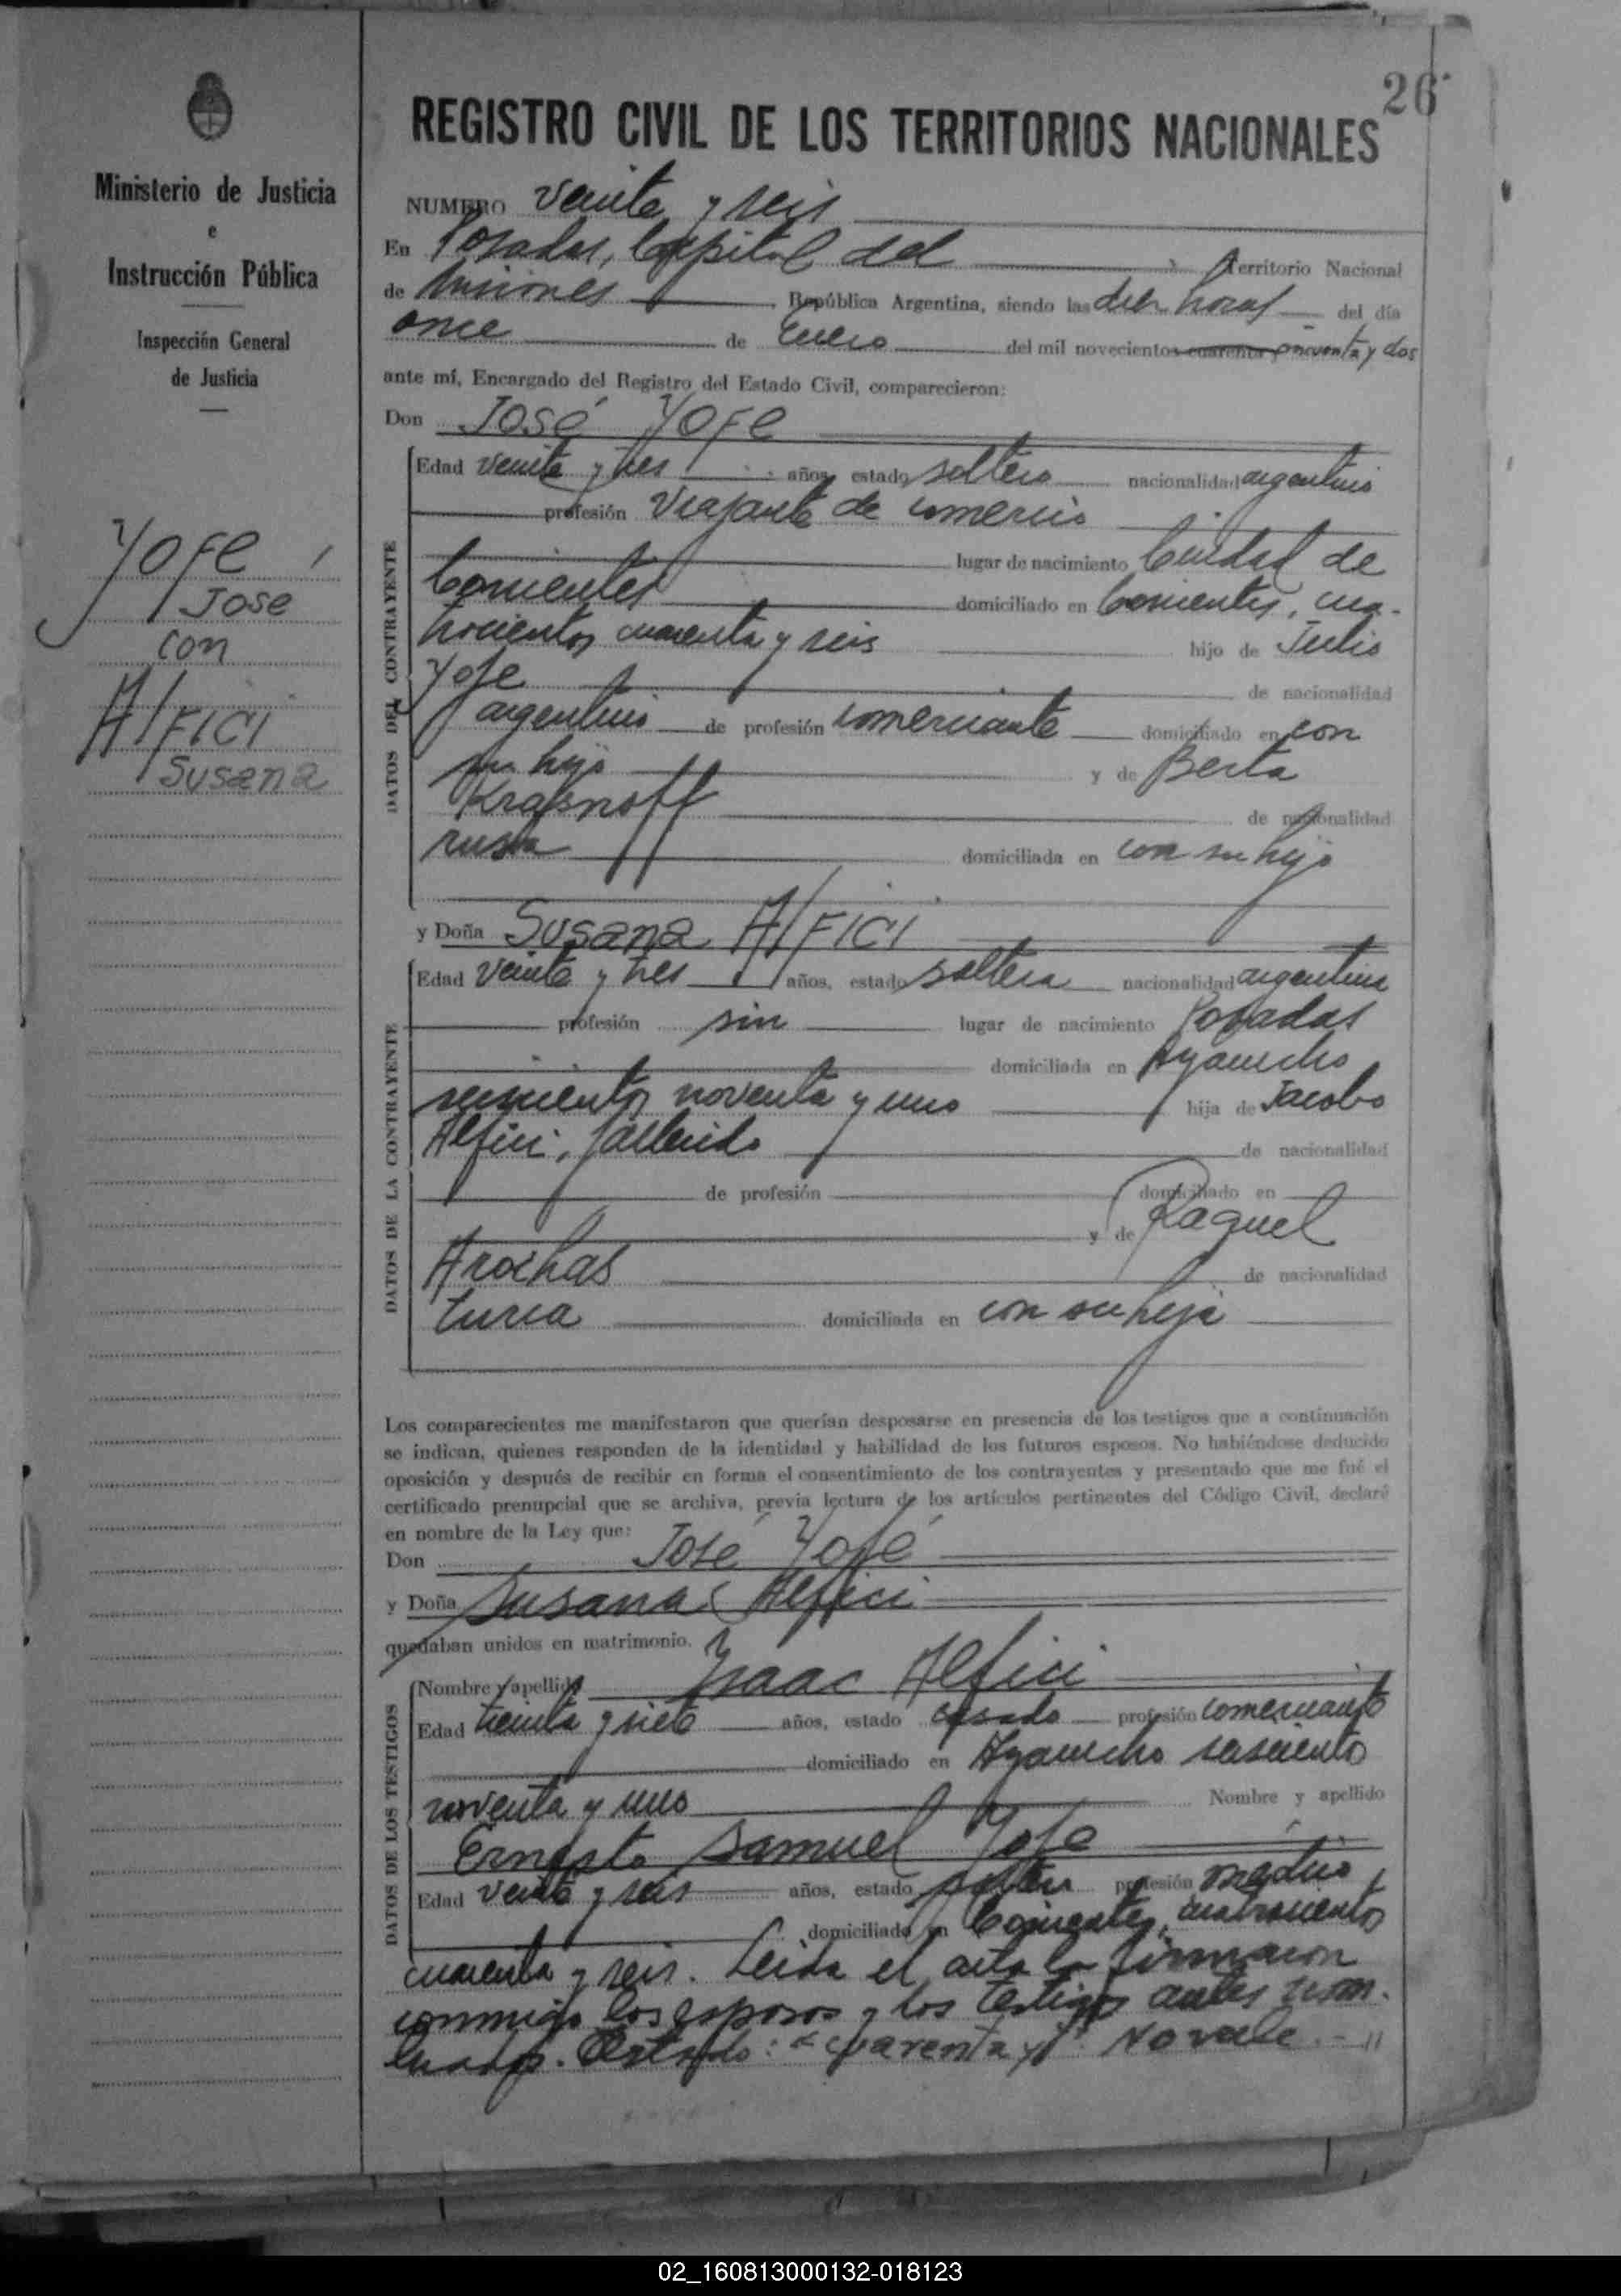 26
Ministerio de Justicia
e
Instrucción Pública
Inspección General
de Justicia
Yofe
José
con
Alfici
Susana
REGISTRO CIVIL DE LOS TERRITORIOS NACIONALES
NUMERO Veinte y seis
En Posadas, Capital del Territorio Nacional
de Misiones República Argentina, siendo las diez horas del día
once de Enero del mil novecientos cuarenta y cincuenta y dos
ante mí, Encargado del Registro del Estado Civil, comparecieron:
Don José Yofe
DATOS DEL CONTRAYENTE
Edad veinte y tres años, estado soltero nacionalidad argentino
profesión viajante de comercio
lugar de nacimiento Ciudad de
Corrientes domiciliado en Corrientes, cua-
trocientos cuarenta y seis hijo de Julio
Yofe de nacionalidad
argentino de profesión comerciante domiciliado en con
su hijo y de Berta
Krasnoff de nacionalidad
rusa domiciliada en con su hijo
y Doña Susana Alfici
DATOS DE LA CONTRAYENTE
Edad veinte y tres años, estado soltera nacionalidad argentina
profesión sin lugar de nacimiento Posadas
domiciliada en Ayacucho
seiscientos noventa y uno hija de Jacobo
Alfici, fallecido de nacionalidad
de profesión domiciliado en
y de Raquel
Arochas de nacionalidad
turca domiciliada en con su hija
Los comparecientes me manifestaron que querían desposarse en presencia de los testigos que a continuación
se indican, quienes responden de la identidad y habilidad de los futuros esposos. No habiéndose deducido
oposición y después de recibir en forma el consentimiento de los contrayentes y presentado que me fué el
certificado prenupcial que se archiva, previa lectura de los artículos pertinentes del Código Civil, declaré
en nombre de la Ley que:
Don José Yofé
y Doña Susana Alfici
quedaban unidos en matrimonio.
DATOS DE LOS TESTIGOS
Nombre y apellido Isaac Alfici
Edad treinta y siete años, estado casado profesión comerciante
domiciliado en Ayacucho seiscientos
noventa y uno Nombre y apellido
Ernesto Samuel Yofe
Edad veinte y seis años, estado soltero profesión médico
domiciliado en Corrientes, cuatrocientos
cuarenta y seis. Leída el acta la firmaron
conmigo los esposos y los testigos antes nom-
brados. Testado: "cuarenta y" No vale.-
02_160813000132-018123